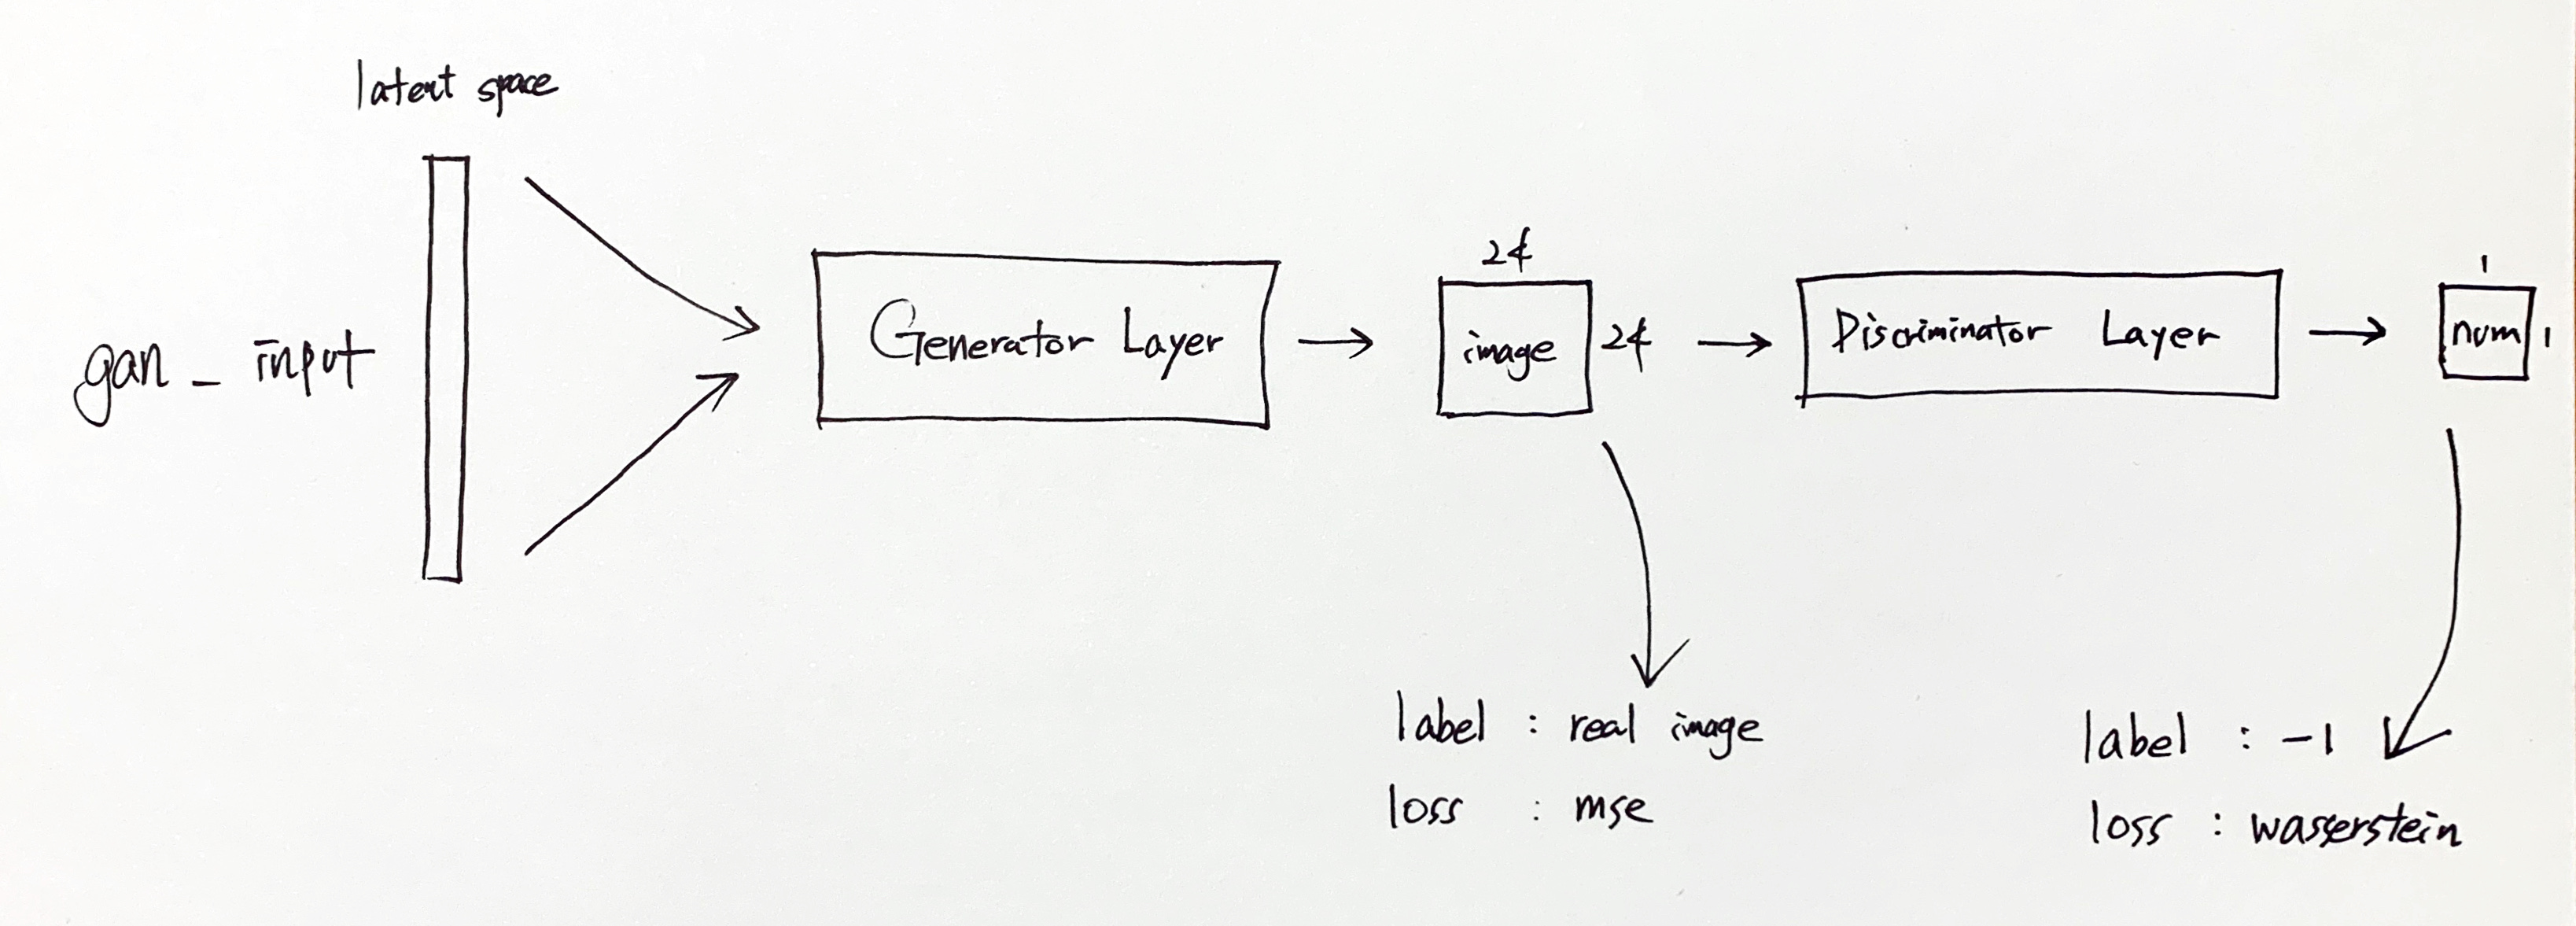 latent space
gan_input
Generator Layer
24
image
24
Discriminator Layer
1
num
1
label : real image
loss : mse
label : -1
loss : wasserstein